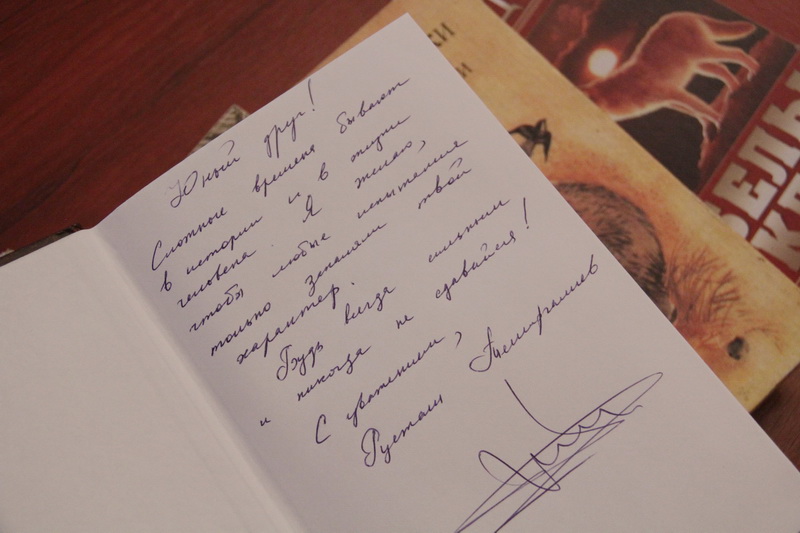 Юный друг!
Сложные времена бывают
в истории и в жизни
человека. Я желаю,
чтобы любые испытания
только закаляли твой
характер.
Будь всегда сильным
и никогда не сдавайся!
С уважением,
Рустам
КИ
И
БЕЛЫ
КЛ